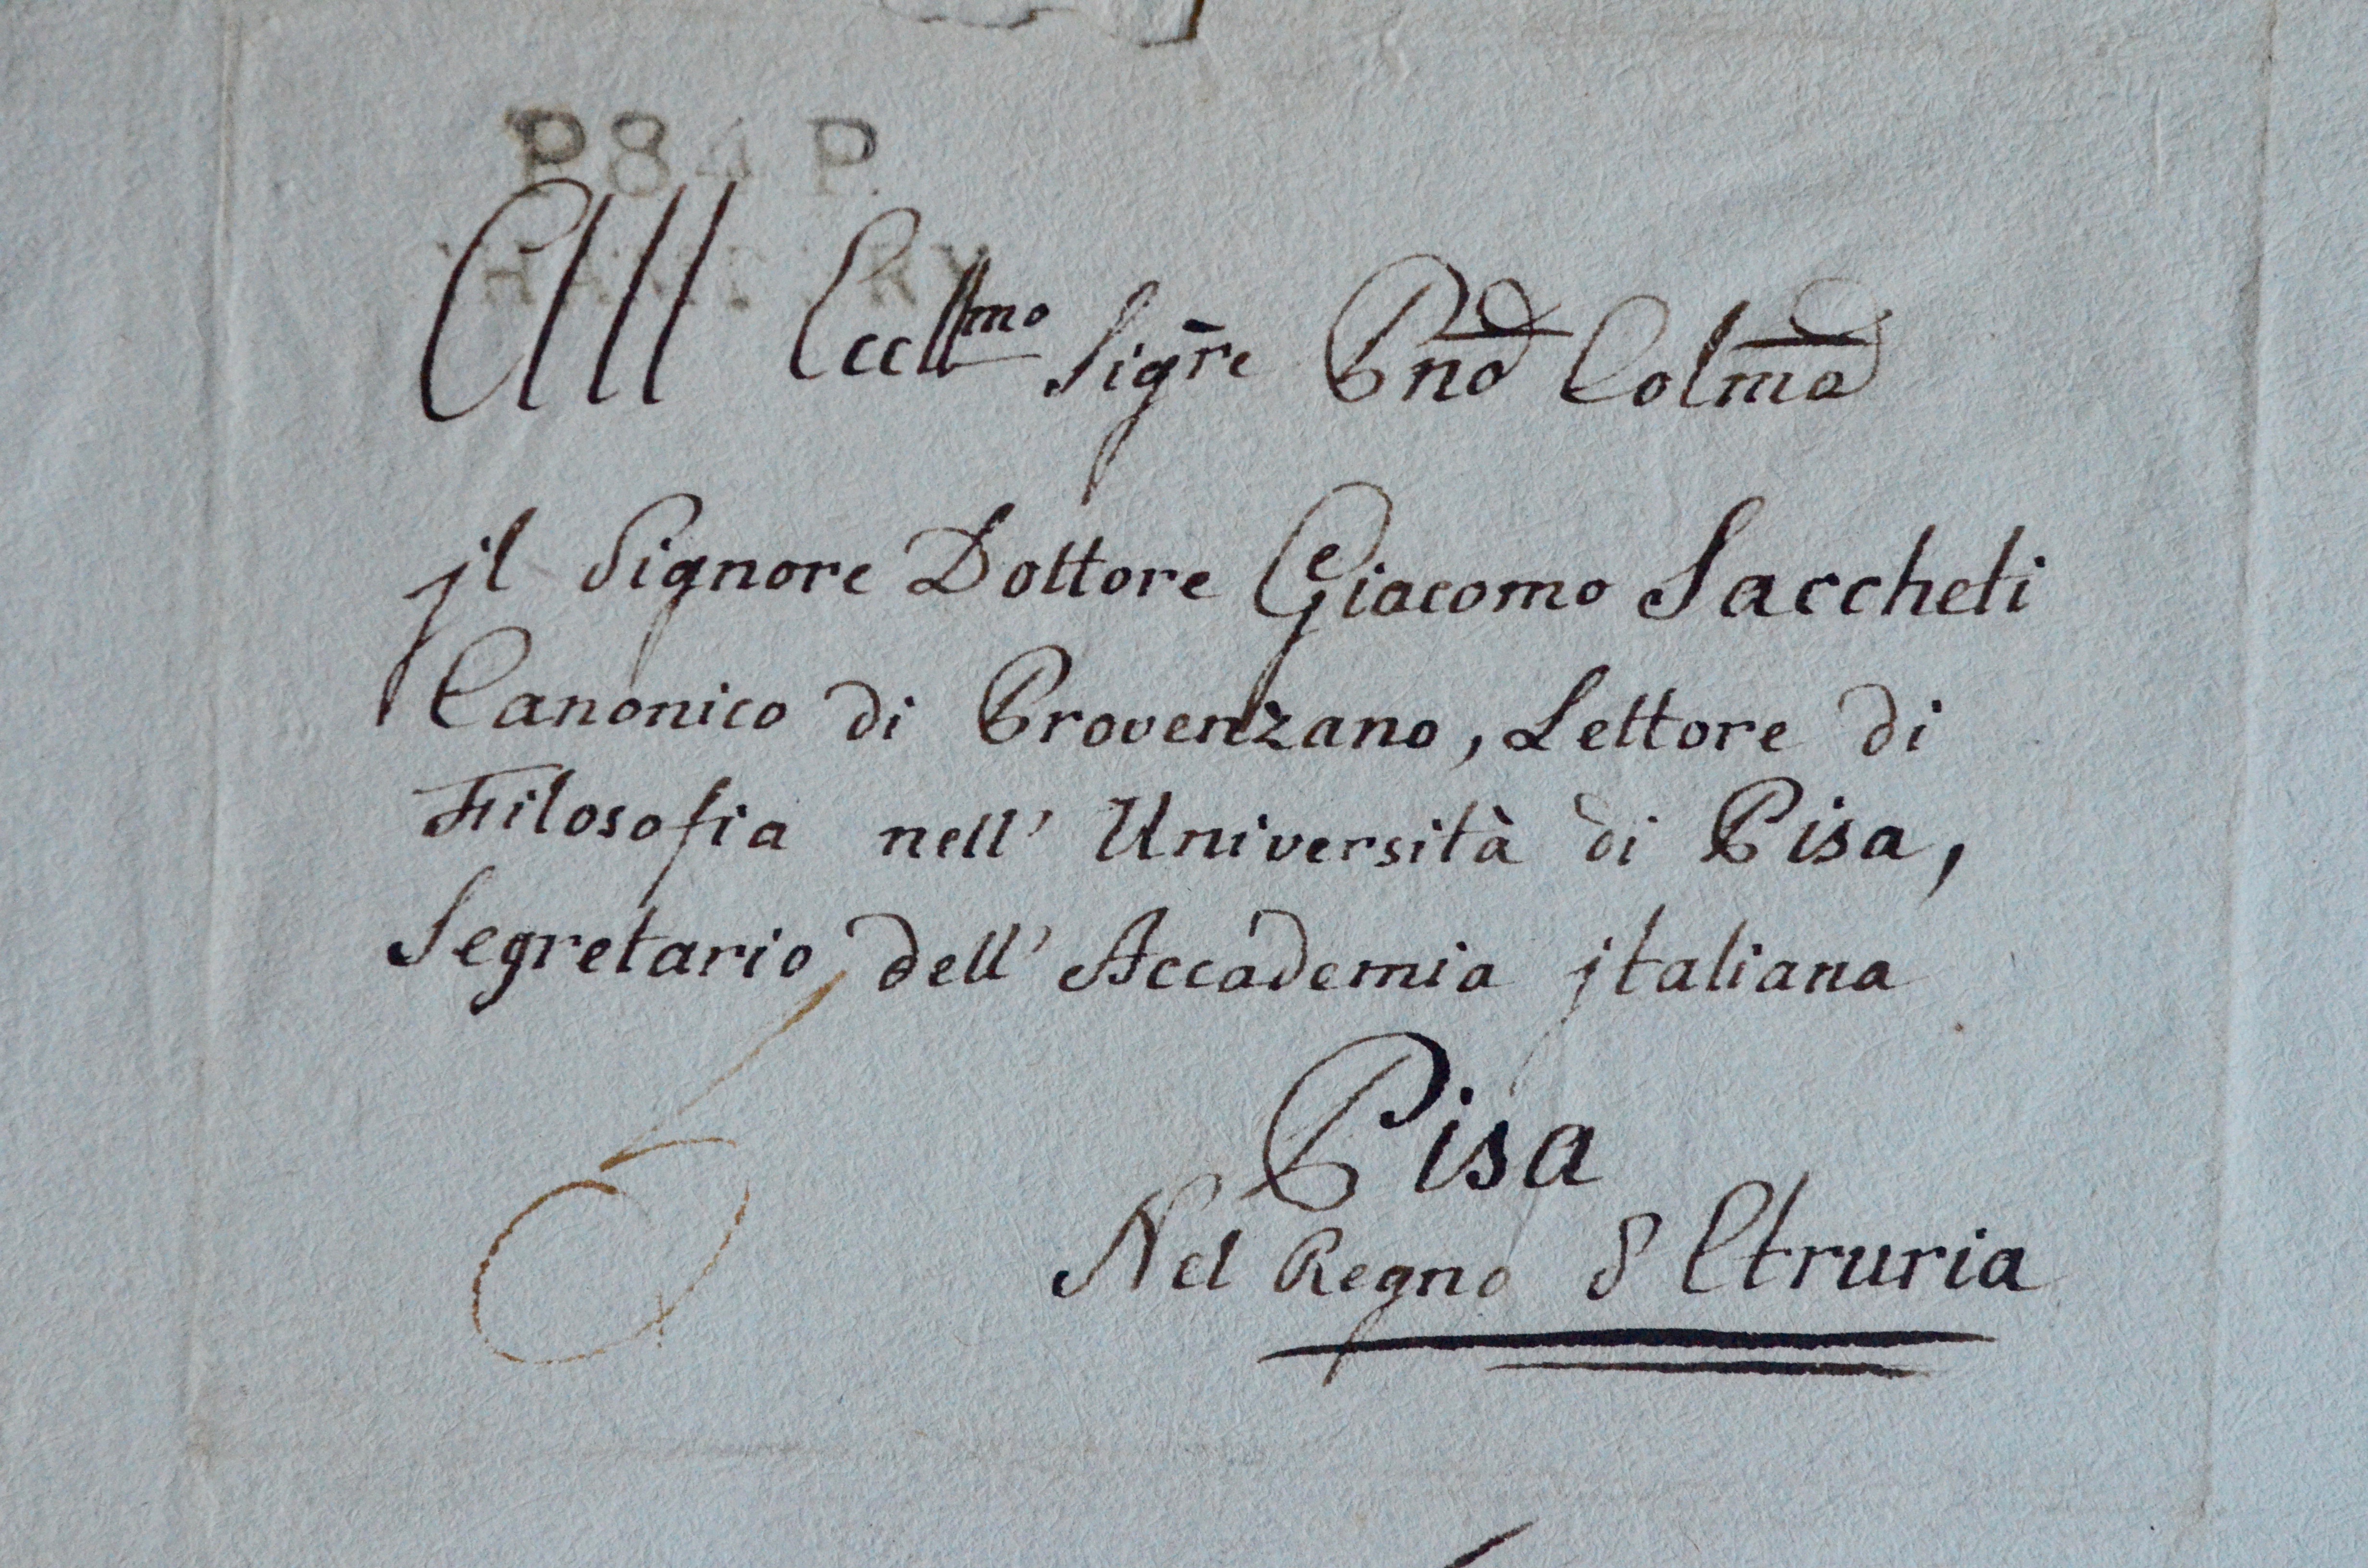 P84P.
All Eccllmo Sigre Pno Colmo
jl Signore Dottore Giacomo Saccheti
Canonico di Provenzano, Lettore di
Filosofia nell' Università di Pisa,
Segretario dell' Accademia jtaliana
Pisa
Nel Regno d Etruria